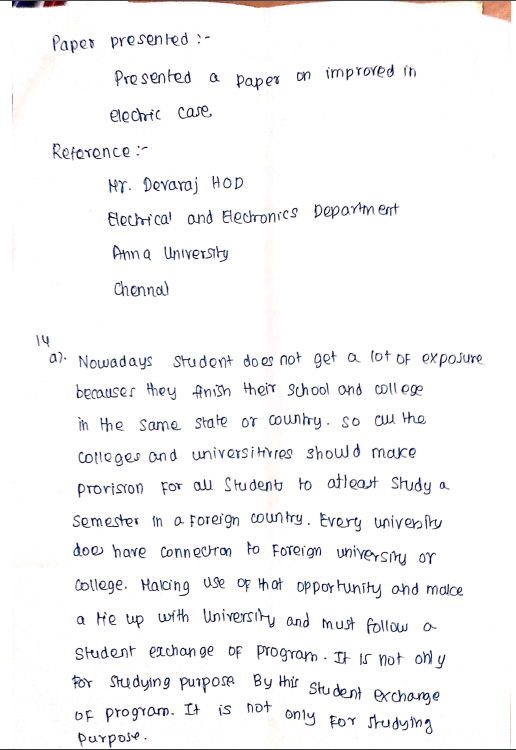 Paper presented :-
Presented a paper on improved in
electric case
Reference :-
Mr. Devaraj HOD
Electrical and Electronics Department
Anna University
Chennai
14
a). Nowadays student does not get a lot of exposure
becauses they finish their school and college
in the same state or country. so all the
colleges and universitivies should make
provision for all students to atleast study a
semester in a foreign country. Every university
does have connection to Foreign university or
college. Making use of that opportunity and make
a tie up with University and must follow a
student exchange of program. It is not only
for studying purpose By this student exchange
of program. It is not only for studying
purpose.